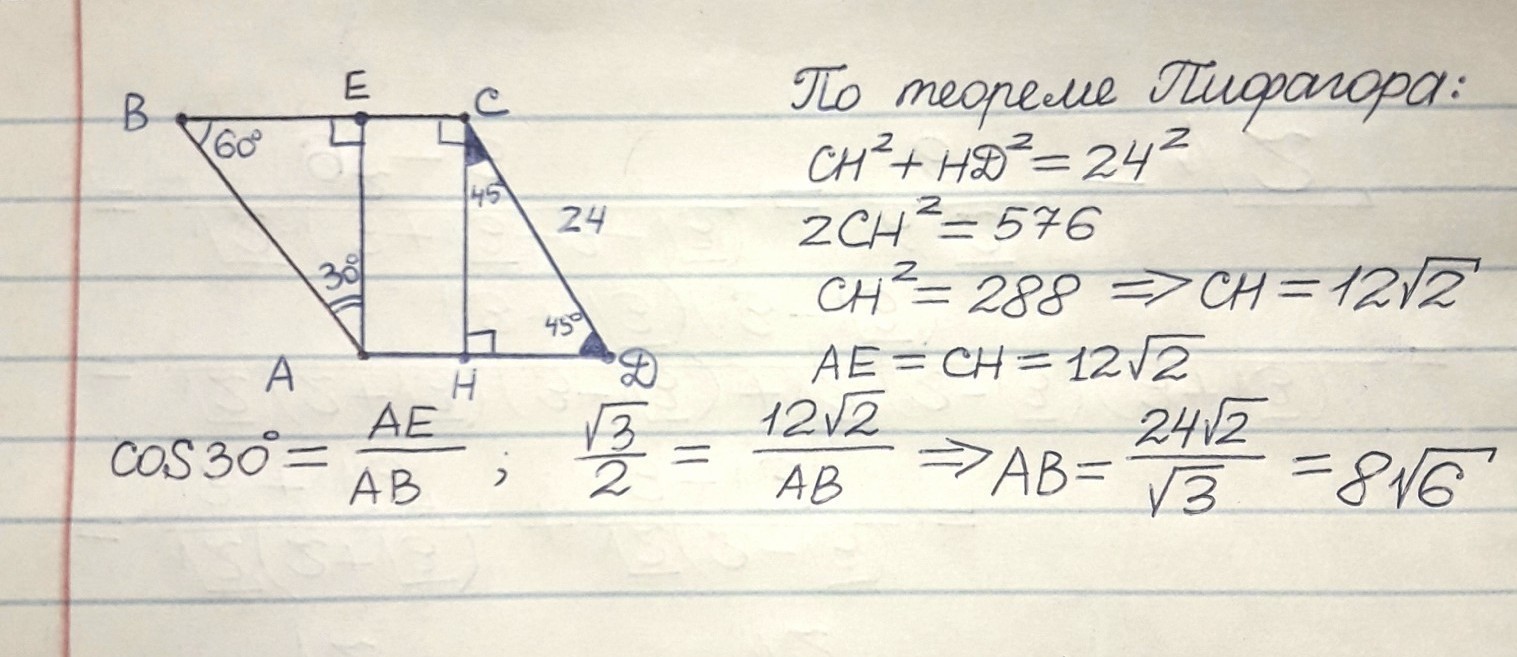 B E C
60°
45
24
30°
45°
A H D
По теореме Пифагора:
CH² + HD² = 24²
2CH² = 576
CH² = 288 ⇒ CH = 12√2
AE = CH = 12√2
cos30° = AE/AB ; √3/2 = 12√2/AB ⇒ AB = 24√2/√3 = 8√6